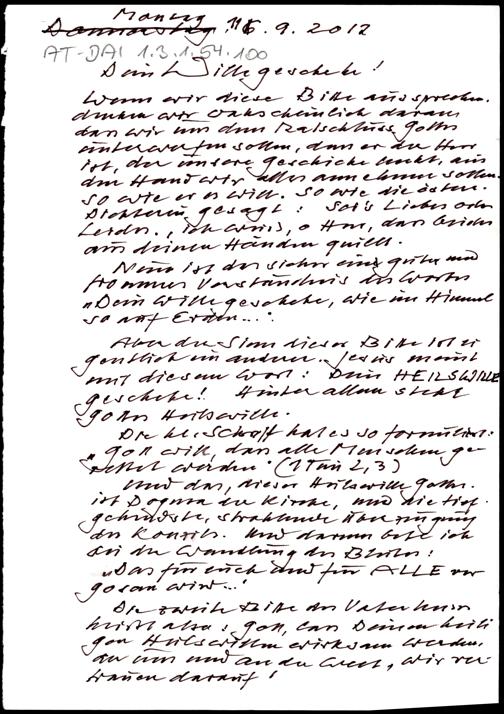 Montag
Donnerstag 16. 9. 2012
AT-DAI 1.3.1.54.100
Dein Wille geschehe!
Wenn wir diese Bitte aussprechen,
denken wir wahrscheinlich daran
dass wir uns dem Ratschluss Gottes
unterwerfen sollen, dass er der Herr
ist, der unsere Geschicke lenkt, aus
den Hand wir alles annehmen sollen
so wie er es will. So wie die öster.
Dichterin gesagt: Sei's Liebes oder
Leides. „Ich weiss, o Herr, dass beides
aus deinen Händen quillt.
Nun ist das sicher ein gutes und
frommes Verständnis des Wortes
„Dein Wille geschehe, wie im Himmel
so auf Erden..."
Aber der Sinn dieser Bitte ist ei
gentlich ein anderer. Jesus meint
mit diesem Wort: Dein HEILSWILLE
geschehe! Hinter allem steht
Gottes Heilswille.
Die hl. Schrift hat es so formuliert:
„Gott will, dass alle Menschen ge-
rettet werden" (1 Tim 2,3)
Und das, dieser Heilswille Gottes
ist Dogma der Kirche, und die tief
gehendste, strahlende Überzeugung
des Konzils. Und darum bete ich
bei der Wandlung des Blutes:
„Das für euch und für ALLE ver
gossen wird..."
Die zweite Bitte des Vater Unser
heisst also: Gott, lass Deinen heili
gen Heilswillen wirksam werden,
an uns und an der Welt, wir ver-
trauen darauf!